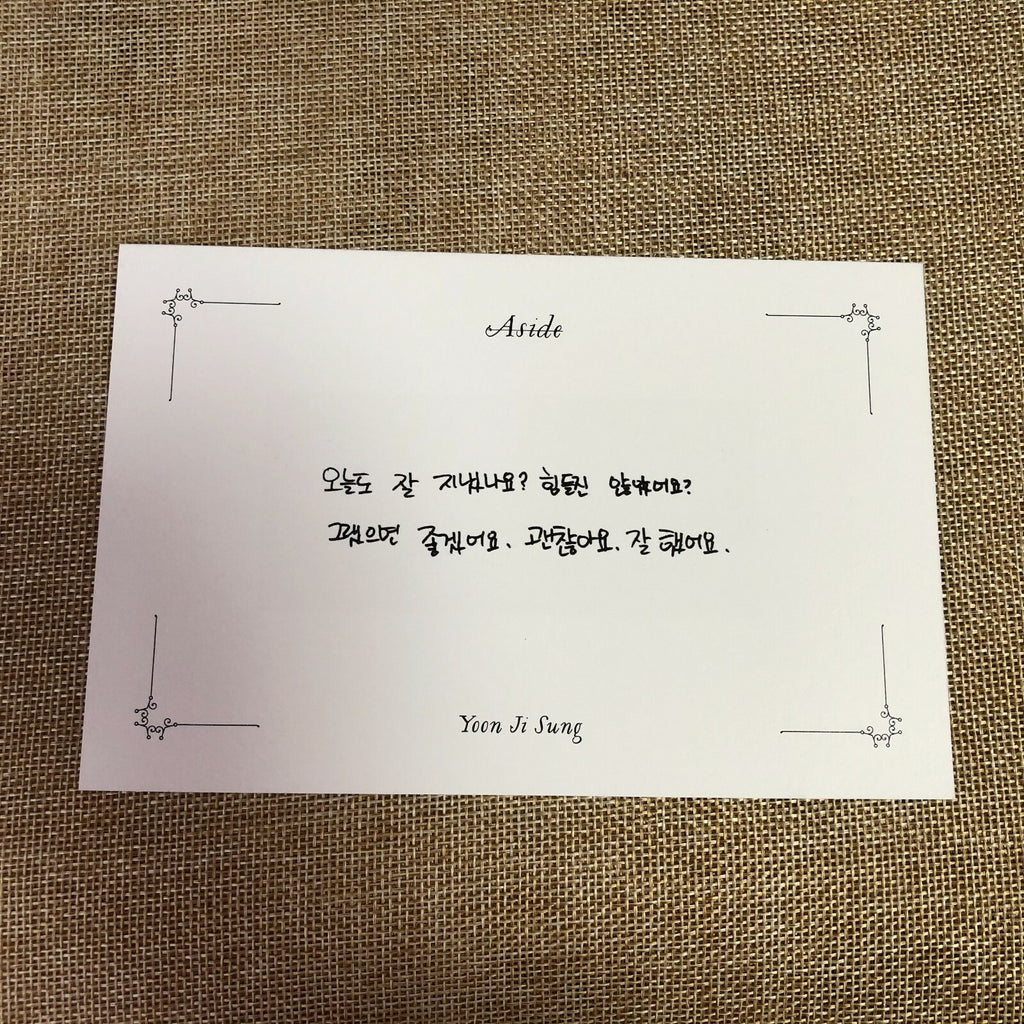 Aside
오늘도 잘 지냈나요? 힘들진 않았어요?
그랬으면 좋겠어요. 괜찮아요. 잘 했어요.
Yoon Ji Sung